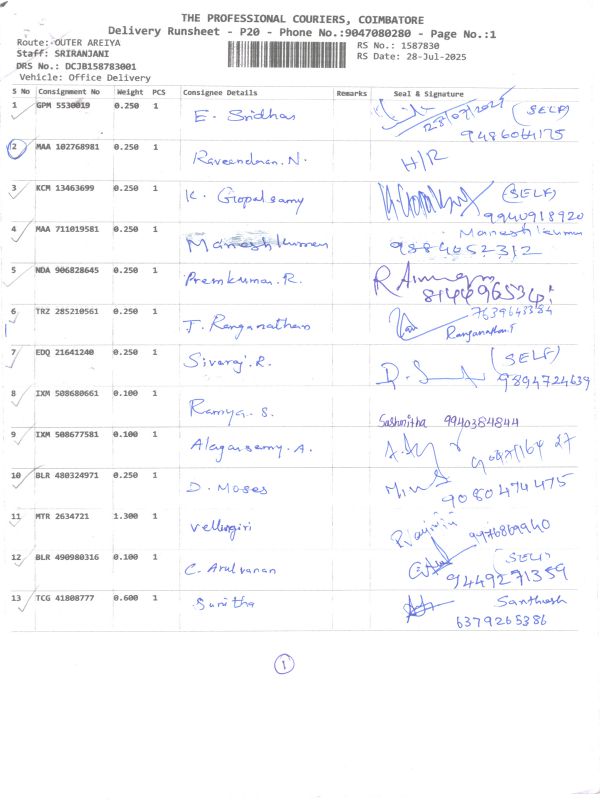 THE PROFESSIONAL COURIERS, COIMBATORE
Delivery Runsheet - P20 - Phone No.:9047080280 - Page No.:1
Route: OUTER AREIYA
Staff: SRIRANJANI
DRS No.: DCJB158783001
Vehicle: Office Delivery
RS No.: 1587830
RS Date: 28-Jul-2025
S No Consignment No Weight PCS Consignee Details Remarks Seal & Signature
1 GPM 5530019 0.250 1 E. Sridhar (SELF)
9486064175
2 MAA 102768981 0.250 1 Raveendran.N. H/R
3 KCM 13463699 0.250 1 K. Gopalsamy (SELF)
9940918920
4 MAA 711019581 0.250 1 Maneshkumar Maneshkumar
9884052312
5 NDA 906828645 0.250 1 Premkumar.R.
6 TRZ 285210561 0.250 1 T. Ranganathan 7639643384
Ranganathan.T
7 EDQ 21641240 0.250 1 Sivaraj.R. (SELF)
9894724639
8 IXM 508680661 0.100 1 Ramya.S.
9940384844
9 IXM 508677581 0.100 1 Alagarsamy.A.
10 BLR 480324971 0.250 1 D. Moses
9080474475
11 MTR 2634721 1.300 1 Vellingiri
12 BLR 490980316 0.100 1 C. Arulvanan (SELF)
9449271359
13 TCG 41808777 0.600 1 Sunitha Santhosh
6379265386
1